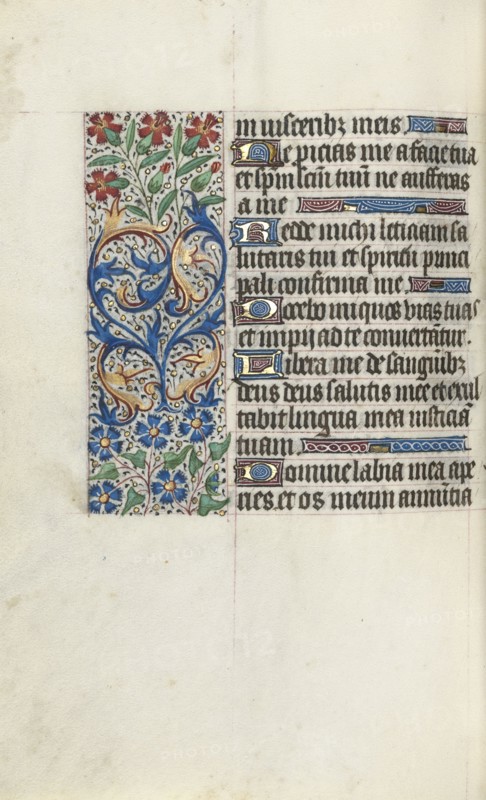 in uisceribz meis
Ne picias me a facie tua
et spm scm tuu ne aufferas
a me
Redde michi leticiam sa
lutaris tui et spiritu princi
pali confirma me
Docebo iniquos vias tuas
et impij ad te conuertatur.
Libera me de sanguibz
deus deus salutis mee et exul
tabit lingua mea iusticia
tuam
Domine labia mea ape
ries et os meum annutia